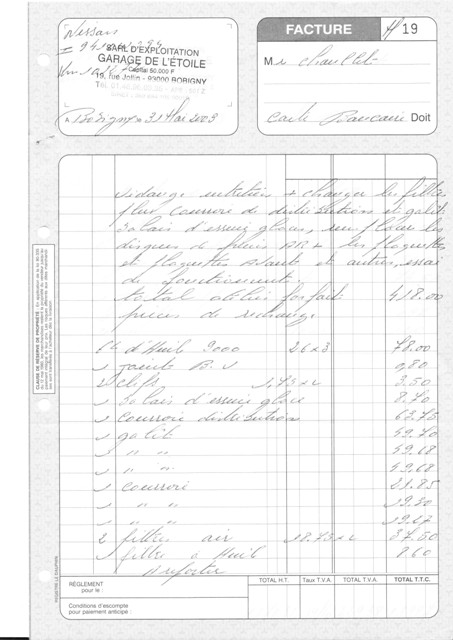 Nissan
SARL D'EXPLOITATION
GARAGE DE L'ÉTOILE
Capital 50.000 F
19, rue Jollin - 93000 BOBIGNY
Bobigny 31 Mai 2003
FACTURE
19
M
Carte Bancaire Doit
Vidange entretien + changer les filtres
plus courroie de distributions et galit
balais d'essuie glace, remplacer les
disques de freins AR + les plaquettes
et plaquettes avants et autres, essai
de fonctionnement.
total atelier forfait 418.00
pieces de rechange
6L d'Huile 9000 26x3 78.00
1 joint B.V 0,80
2 clefs 1,75x2 3.50
balais d'essuie glace 8.70
1 courroie distributions 63.75
1 galit 49.70
1 " " 49.68
1 " " 49.68
1 courroie 21.85
1 " " 19.20
1 " "
2 filtres air 18.75x2 37.50
1 filtre à Huile 8.60
A reporter
CLAUSE DE RÉSERVE DE PROPRIÉTÉ
RÈGLEMENT
pour le :
Conditions d'escompte
pour paiement anticipé :
TOTAL H.T. Taux T.V.A. TOTAL T.V.A. TOTAL T.T.C.